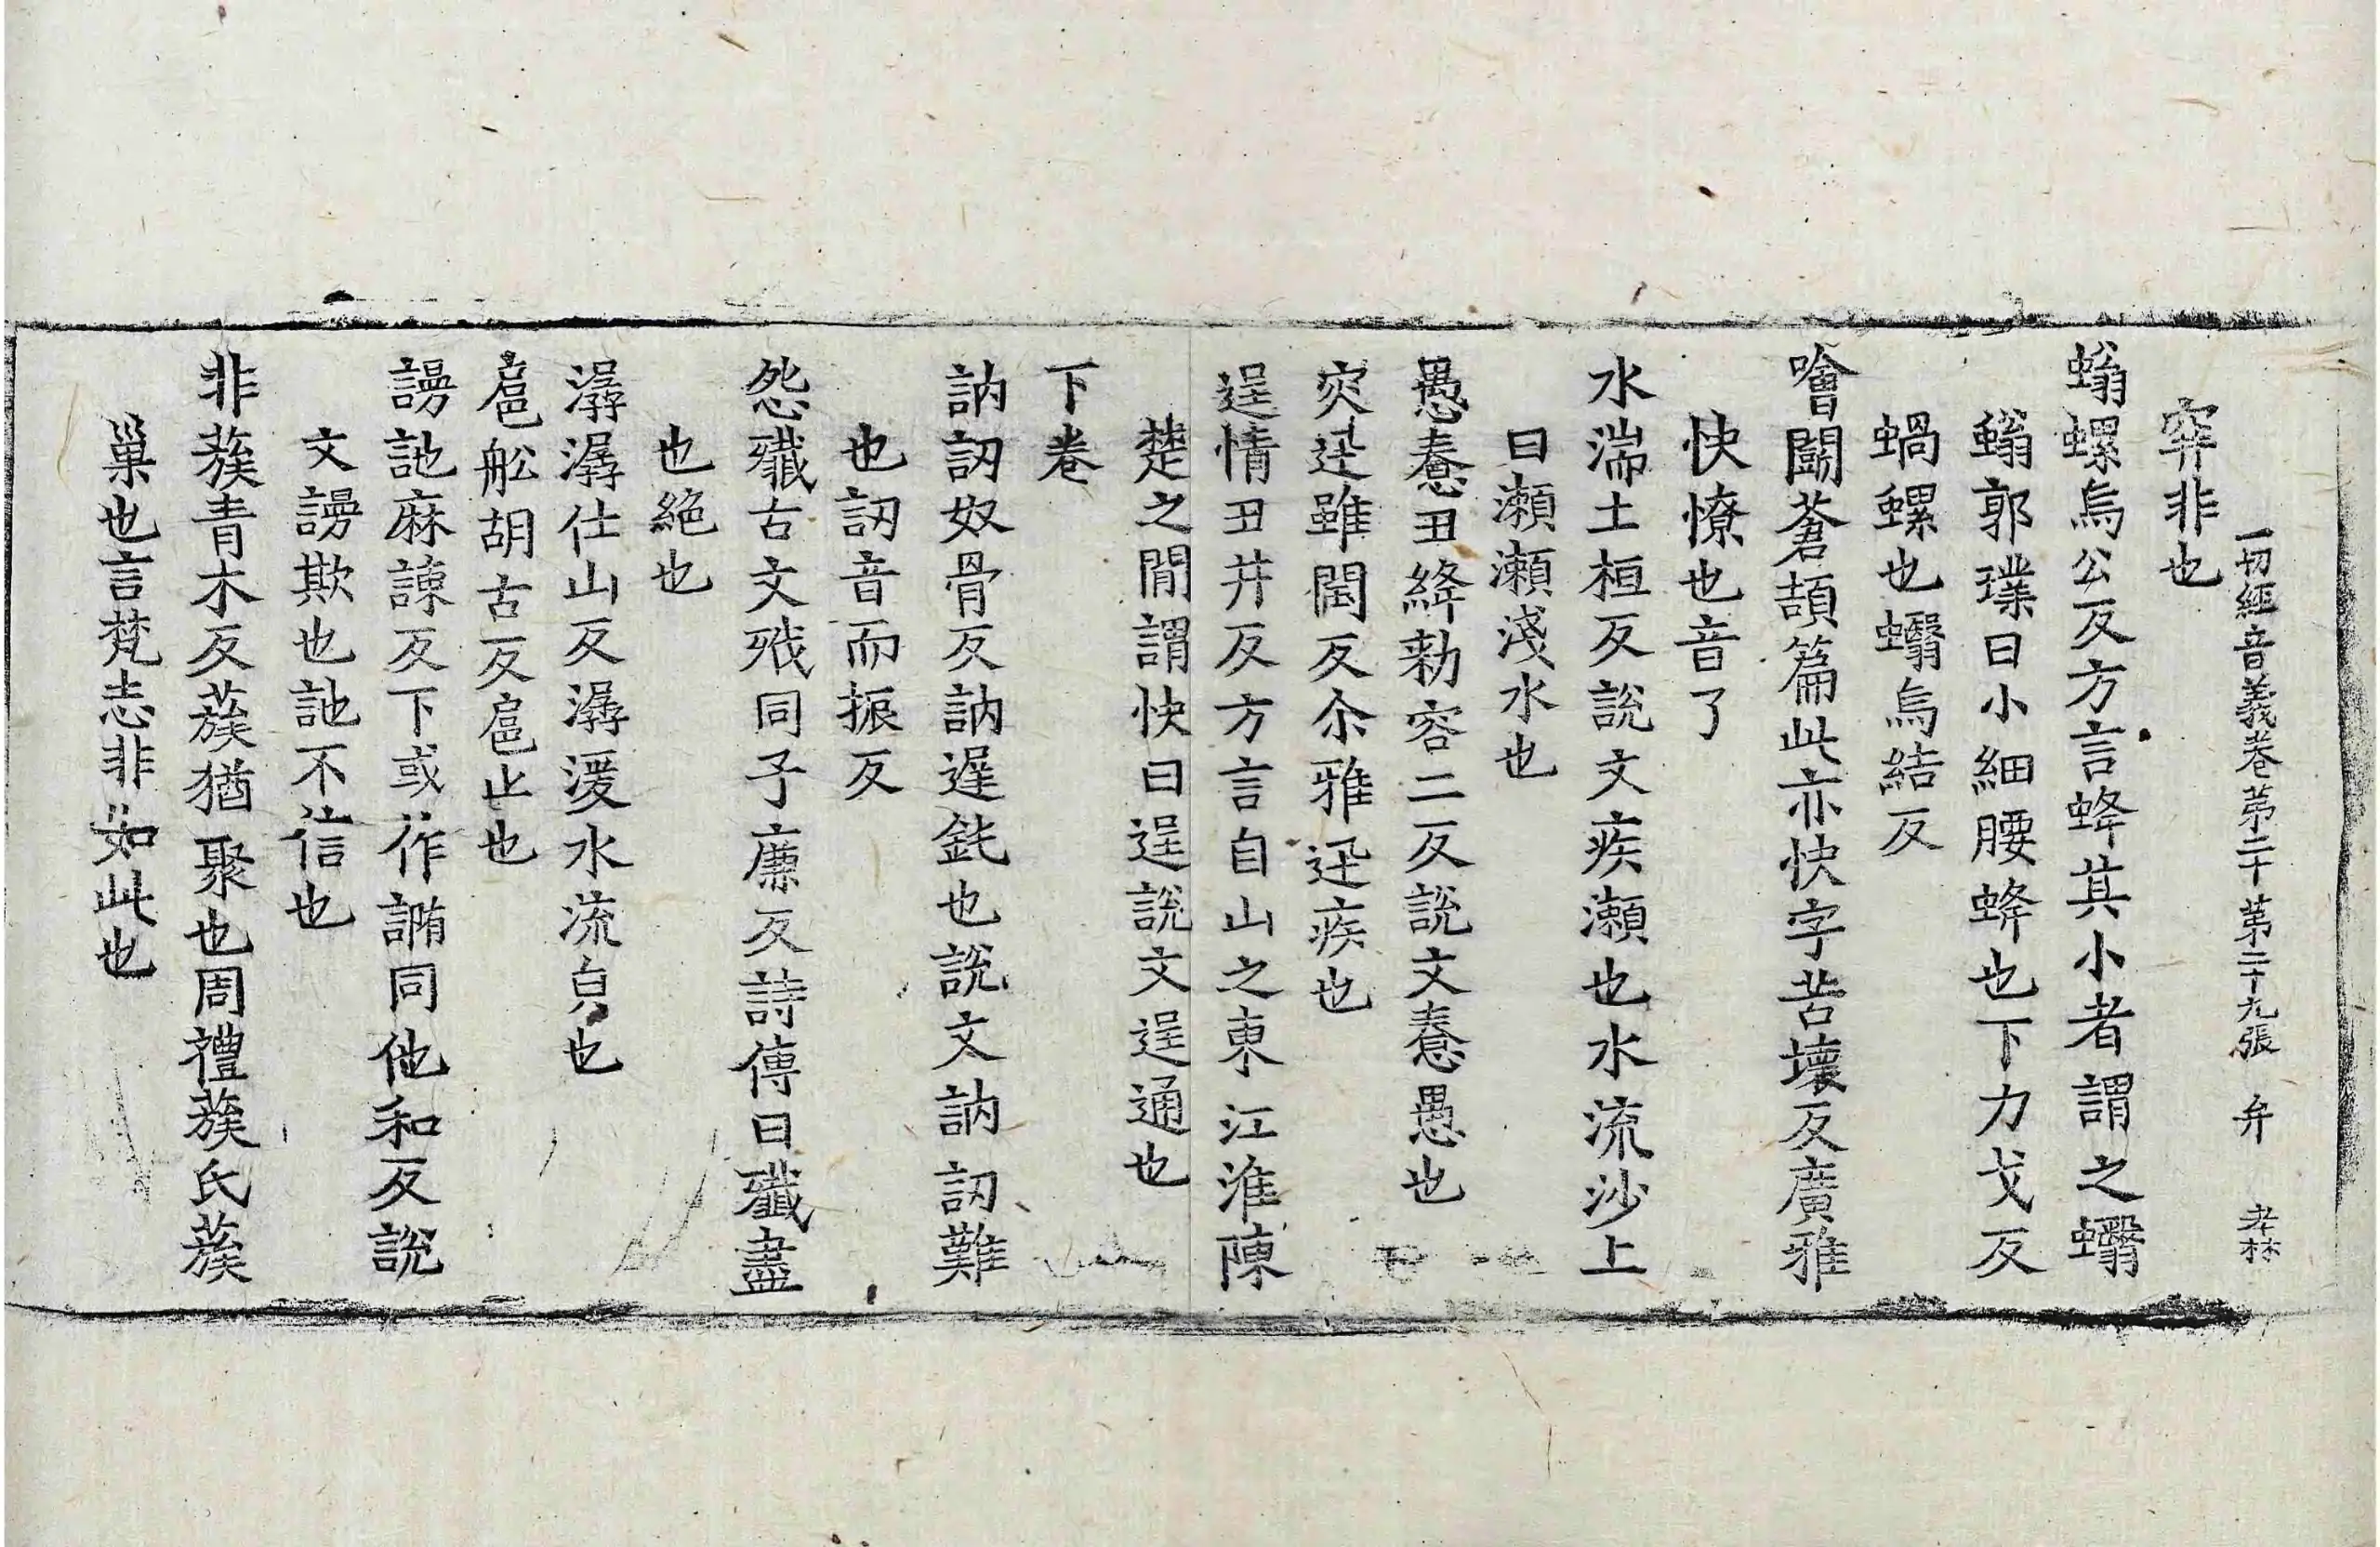 一切經音義卷第二十 第二十九張 弁 孝林
穽非也
螉螺烏公反方言蜂其小者謂之蠮
螉郭璞曰小細腰蜂也下力戈反
蝸螺也蠮烏結反
噲闘蒼頡篇此亦快字苦壞反廣雅
快憭也音了
水湍土桓反說文疾瀨也水流沙上
曰瀨瀨淺水也
愚惷丑絳勑容二反說文惷愚也
突迅雖閏反尒雅迅疾也
逞情丑井反方言自山之東江淮陳
楚之閒謂快曰逞說文逞通也
下卷
訥訒奴骨反訥遲鈍也說文訥訒難
也訒音而振反
怨殲古文㦰同子廉反詩傳曰殲盡
也絕也
潺潺仕山反潺湲水流皃也
扈舩胡古反扈止也
謾訑麻諫反下或作𧩧同他和反說
文謾欺也訑不信也
非蔟青木反蔟猶聚也周禮蔟氏蔟
巢也言梵志非如此也